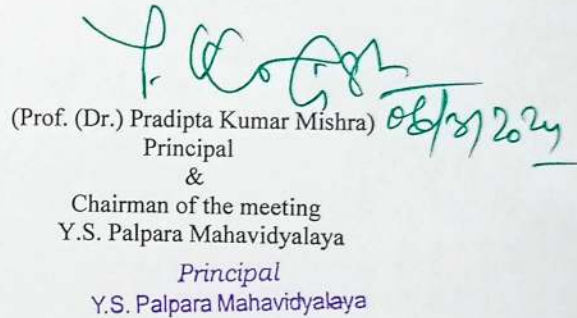 (Prof. (Dr.) Pradipta Kumar Mishra)
Principal
&
Chairman of the meeting
Y.S. Palpara Mahavidyalaya
Principal
Y.S. Palpara Mahavidyalaya